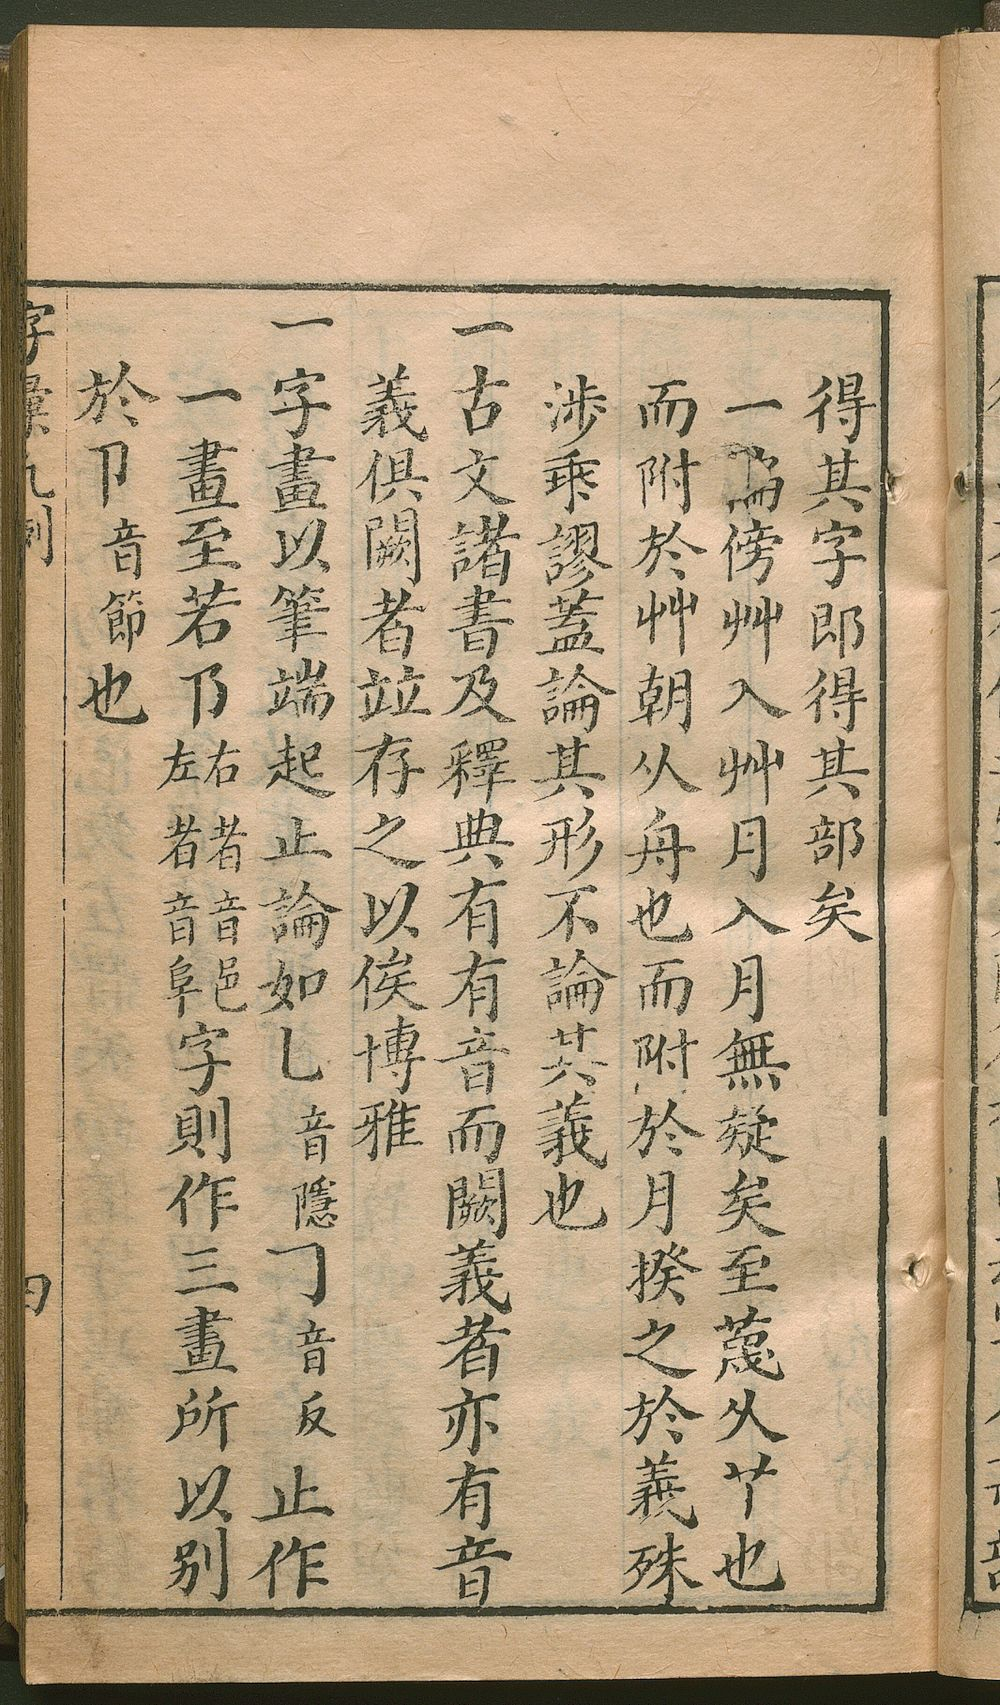 得其字即得其部矣
一偏傍艸入艸月入月無疑矣至蔑从丫也
而附於艸朝从舟也而附於月揆之於義殊
涉乖謬蓋論其形不論其義也
一古文諸書及釋典有有音而闕義者亦有音
義俱闕者竝存之以俟博雅
一字畫以筆端起止論如乚音隱㇆音反止作
一畫至若阝右者音邑左者音阜字則作三畫所以别
於卩音節也
字彙凡例
四